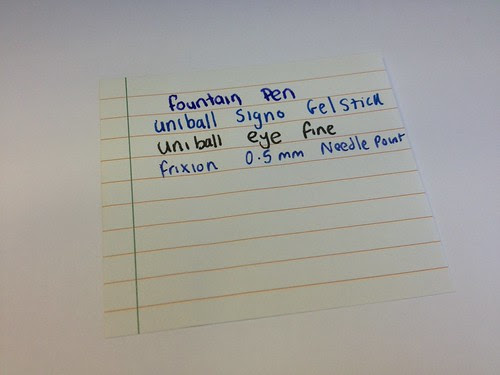 fountain Pen
uniball Signo Gel Stick
uniball eye fine
frixion 0.5mm Needle Point